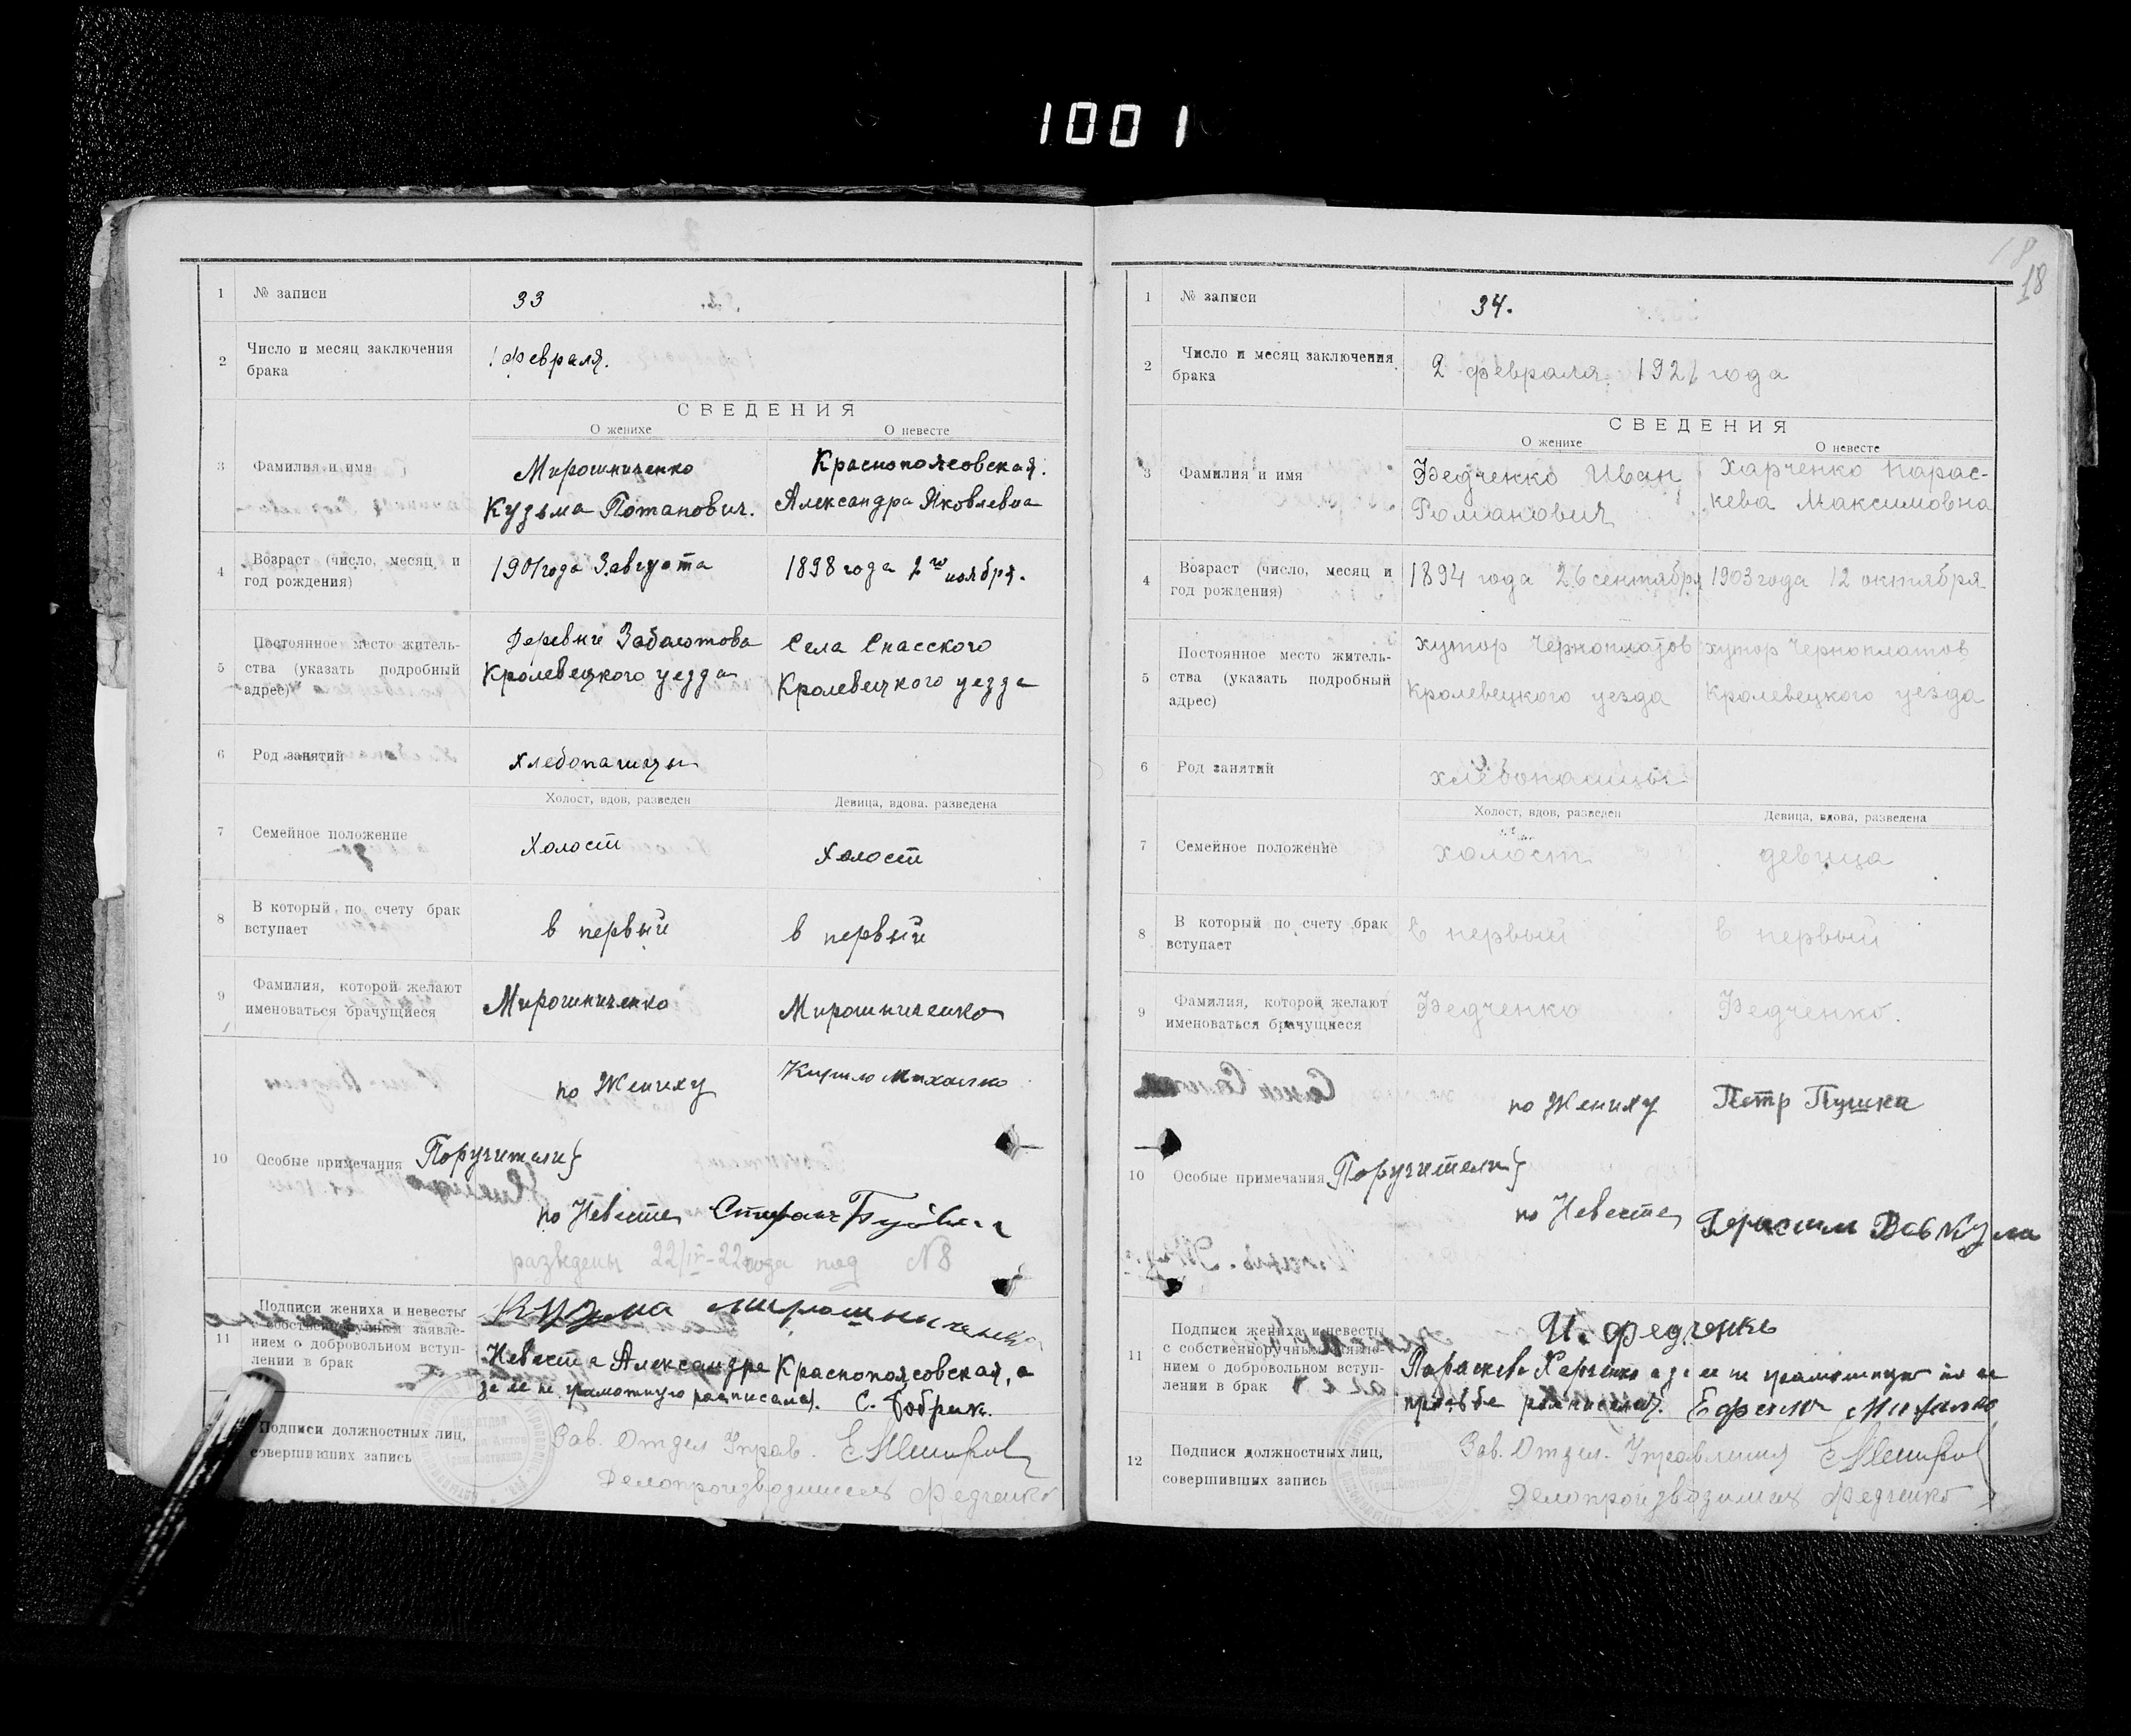 1001
1 № записи 33
2 Число и месяц заключения
брака
1 февраля.
СВЕДЕНИЯ
О женихе О невесте
3 Фамилия и имя
Мирошниченко
Кузьма Потапович.
Краснопоясовская.
Александра Яковлевна
4 Возраст (число, месяц и
год рождения)
1901 года 3 августа
1898 года 2го ноября.
5 Постоянное место житель-
ства (указать подробный
адрес)
Деревни Заболотова
Кролевецкого уезда
Села Спасского
Кролевецкого уезда
6 Род занятий
хлебопашцы
Холост, вдов, разведен Девица, вдова, разведена
7 Семейное положение
Холост
Холост
8 В который по счету брак
вступает
в первый
в первый
9 Фамилия, которой желают
именоваться брачущиеся
Мирошниченко
Мирошниченко
по Жениху
10 Особые примечания Поручители}
по Невесте
разведены 22/IV-22 года под №8
11 Подписи жениха и невесты
с собственноручным заявле-
нием о добровольном вступ-
лении в брак
Кузма мирошниченко
Невеста Александра Краснопоясовская, а
за ее не грамотную расписался С.
Подписи должностных лиц,
совершивших запись
Зав. Отдел Управ.
Делопроизводитель Федченко
18
18
1 № записи 34.
2 Число и месяц заключения
брака
2 февраля 1921 года
СВЕДЕНИЯ
О женихе О невесте
3 Фамилия и имя
Федченко Иван
Романович
Харченко Парас-
кева Максимовна
4 Возраст (число, месяц и
год рождения)
1894 года 26 сентября
1903 года 12 октября
5 Постоянное место житель-
ства (указать подробный
адрес)
хутор Черноплатов
Кролевецкого уезда
хутор Черноплатов
Кролевецкого уезда
6 Род занятий
хлебопашцы
Холост, вдов, разведен Девица, вдова, разведена
7 Семейное положение
холост
девица
8 В который по счету брак
вступает
в первый
в первый
9 Фамилия, которой желают
именоваться брачущиеся
Федченко
Федченко.
по Жениху Петр Пушка
10 Особые примечания Поручители}
по Невесте
11 Подписи жениха и невесты
с собственноручным заявле-
нием о добровольном вступ-
лении в брак
И. Федченко
Параскева Харченко а за ее не грамотную по ее
просьбе расписался
12 Подписи должностных лиц,
совершивших запись
Зав. Отдел. Управления
Делопроизводитель Федченко